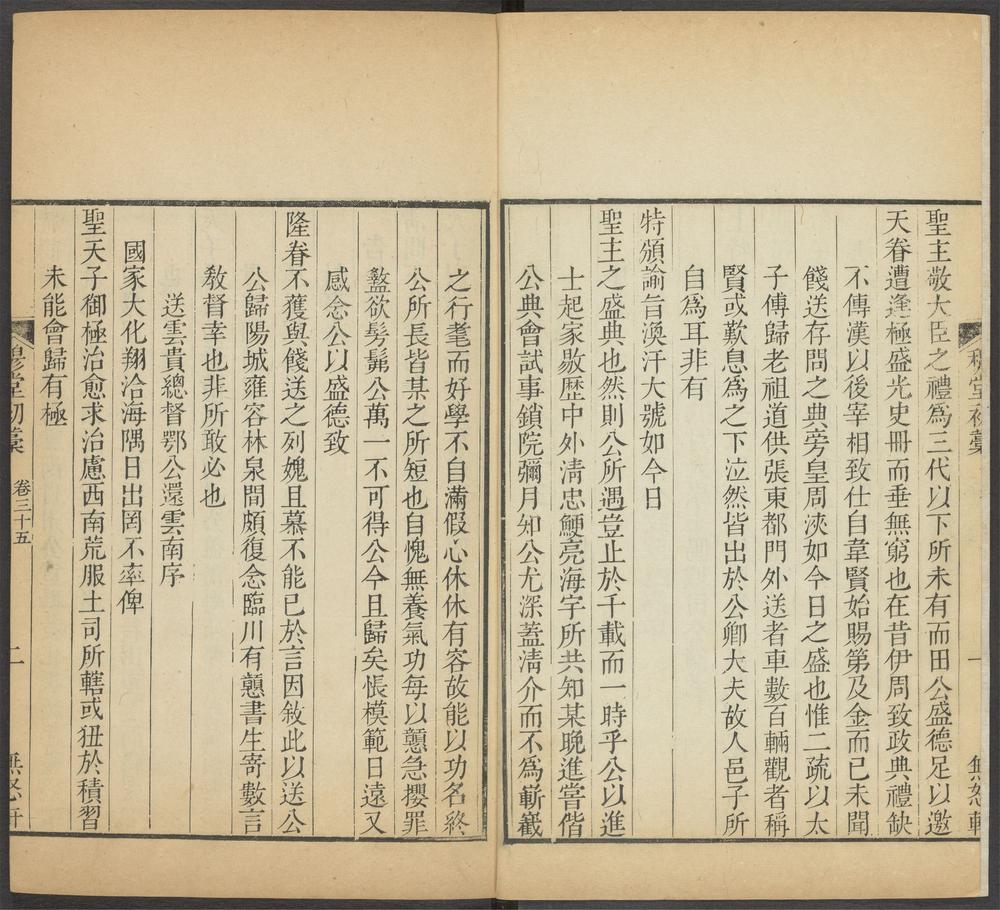 穆堂初藁
一
無怒軒
聖主敬大臣之禮爲三代以下所未有而田公盛德足以邀
天眷遭逢極盛光史冊而垂無窮也在昔伊周致政典禮缺
不傳漢以後宰相致仕自韋賢始賜第及金而已未聞
餞送存問之典旁皇周浹如今日之盛也惟二疏以太
子傅歸老祖道供張東都門外送者車數百輛觀者稱
賢或歎息爲之下泣然皆出於公卿大夫故人邑子所
自爲耳非有
特頒諭旨渙汗大號如今日
聖主之盛典也然則公所遇豈止於千載而一時乎公以進
士起家敭歴中外淸忠鯁亮海宇所共知某晚進嘗偕
公典會試事鎖院彌月知公尤深蓋淸介而不爲嶄巀
之行耄而好學不自滿假心休休有容故能以功名終
公所長皆某之所短也自愧無養氣功每以戇急攖罪
盭欲髣髴公萬一不可得公今且歸矣悵模範日遠又
感念公以盛德致
隆眷不獲與餞送之列媿且慕不能已於言因敘此以送公
公歸陽城雍容林泉間頗復念臨川有戇書生寄數言
敎督幸也非所敢必也
送雲貴總督鄂公還雲南序
國家大化翔洽海隅日出罔不率俾
聖天子御極治愈求治慮西南荒服土司所轄或狃於積習
未能會歸有極
穆堂初藁
卷三十五
二
無怒軒